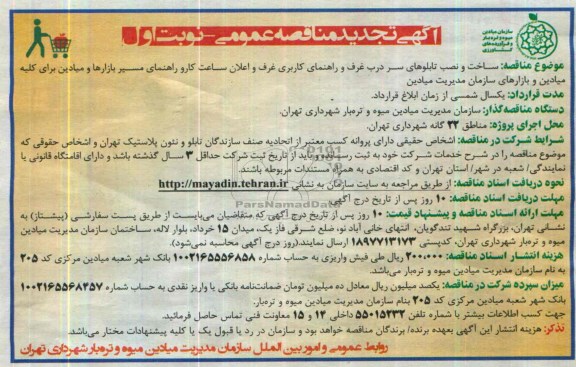 آگهی تجدید مناقصه عمومی - نوبت اول
سازمان میادین
میوه و تره‌بار
و فرآورده‌های
کشاورزی
موضوع مناقصه: ساخت و نصب تابلوهای سر درب غرف و راهنمای کاربری غرف و اعلان ساعت کارو راهنمای مسیر بازارها و میادین برای کلیه
میادین و بازارهای سازمان مدیریت میادین
مدت قرارداد: یکسال شمسی از زمان ابلاغ قرارداد.
دستگاه مناقصه‌گذار: سازمان مدیریت میادین میوه و تره‌بار شهرداری تهران.
محل اجرای پروژه: مناطق ۲۲ گانه شهرداری تهران.
شرایط شرکت در مناقصه: اشخاص حقیقی دارای پروانه کسب معتبر از اتحادیه صنف سازندگان تابلو و نئون پلاستیک تهران و اشخاص حقوقی که
موضوع مناقصه را در شرح خدمات شرکت خود به ثبت رسانده و باید از تاریخ ثبت شرکت حداقل ۳ سال گذشته باشد و دارای اقامتگاه قانونی یا
نمایندگی/ شعبه در شهر/ استان تهران و کد اقتصادی به همراه مستندات مربوطه باشند.
نحوه دریافت اسناد: از طریق مراجعه به سایت سازمان به نشانی http://mayadin.tehran.ir
مهلت دریافت اسناد: ۱۰ روز پس از تاریخ درج آگهی
مهلت ارائه اسناد مناقصه و پیشنهاد قیمت: ۱۰ روز پس از تاریخ درج آگهی که متقاضیان می‌بایست از طریق پست سفارشی (پیشتاز) به
نشانی تهران، بزرگراه شهید تندگویان، انتهای خانی آباد نو، ضلع شرقی فاز یک، میدان ۱۵ خرداد، بلوار لاله، ساختمان سازمان مدیریت میادین
میوه و تره‌بار شهرداری تهران، کدپستی ۱۸۹۷۷۱۳۱۷۳ ارسال نمایند.(روز درج آگهی محاسبه نمی‌شود).
هزینه انتشار اسناد مناقصه: ۲۰۰,۰۰۰ ریال طی فیش واریزی به حساب شماره ۱۰۰۲۱۶۵۵۵۶۸۵۸ بانک شهر شعبه میادین مرکزی کد ۲۰۵
به نام سازمان مدیریت میادین میوه و تره‌بار می‌باشد.
میزان سپرده شرکت در مناقصه: یکصد میلیون ریال معادل ده میلیون تومان ضمانت‌نامه بانکی یا واریز نقدی به حساب شماره ۱۰۰۲۱۶۵۵۶۸۴۵۷
بانک شهر شعبه میادین مرکزی کد ۲۰۵ بنام سازمان مدیریت میادین میوه و تره‌بار.
جهت کسب اطلاعات بیشتر با شماره تلفن ۵۵۰۱۵۲۳۲ داخلی ۱۴ و ۱۵ معاونت فنی تماس حاصل فرمائید.
تذکر: هزینه انتشار این آگهی بعهده برنده/ برندگان مناقصه خواهد بود و سازمان در رد یا قبول یک یا کلیه پیشنهادات مختار می‌باشد.
روابط عمومی و امور بین الملل سازمان مدیریت میادین میوه و تره‌بار شهرداری تهران